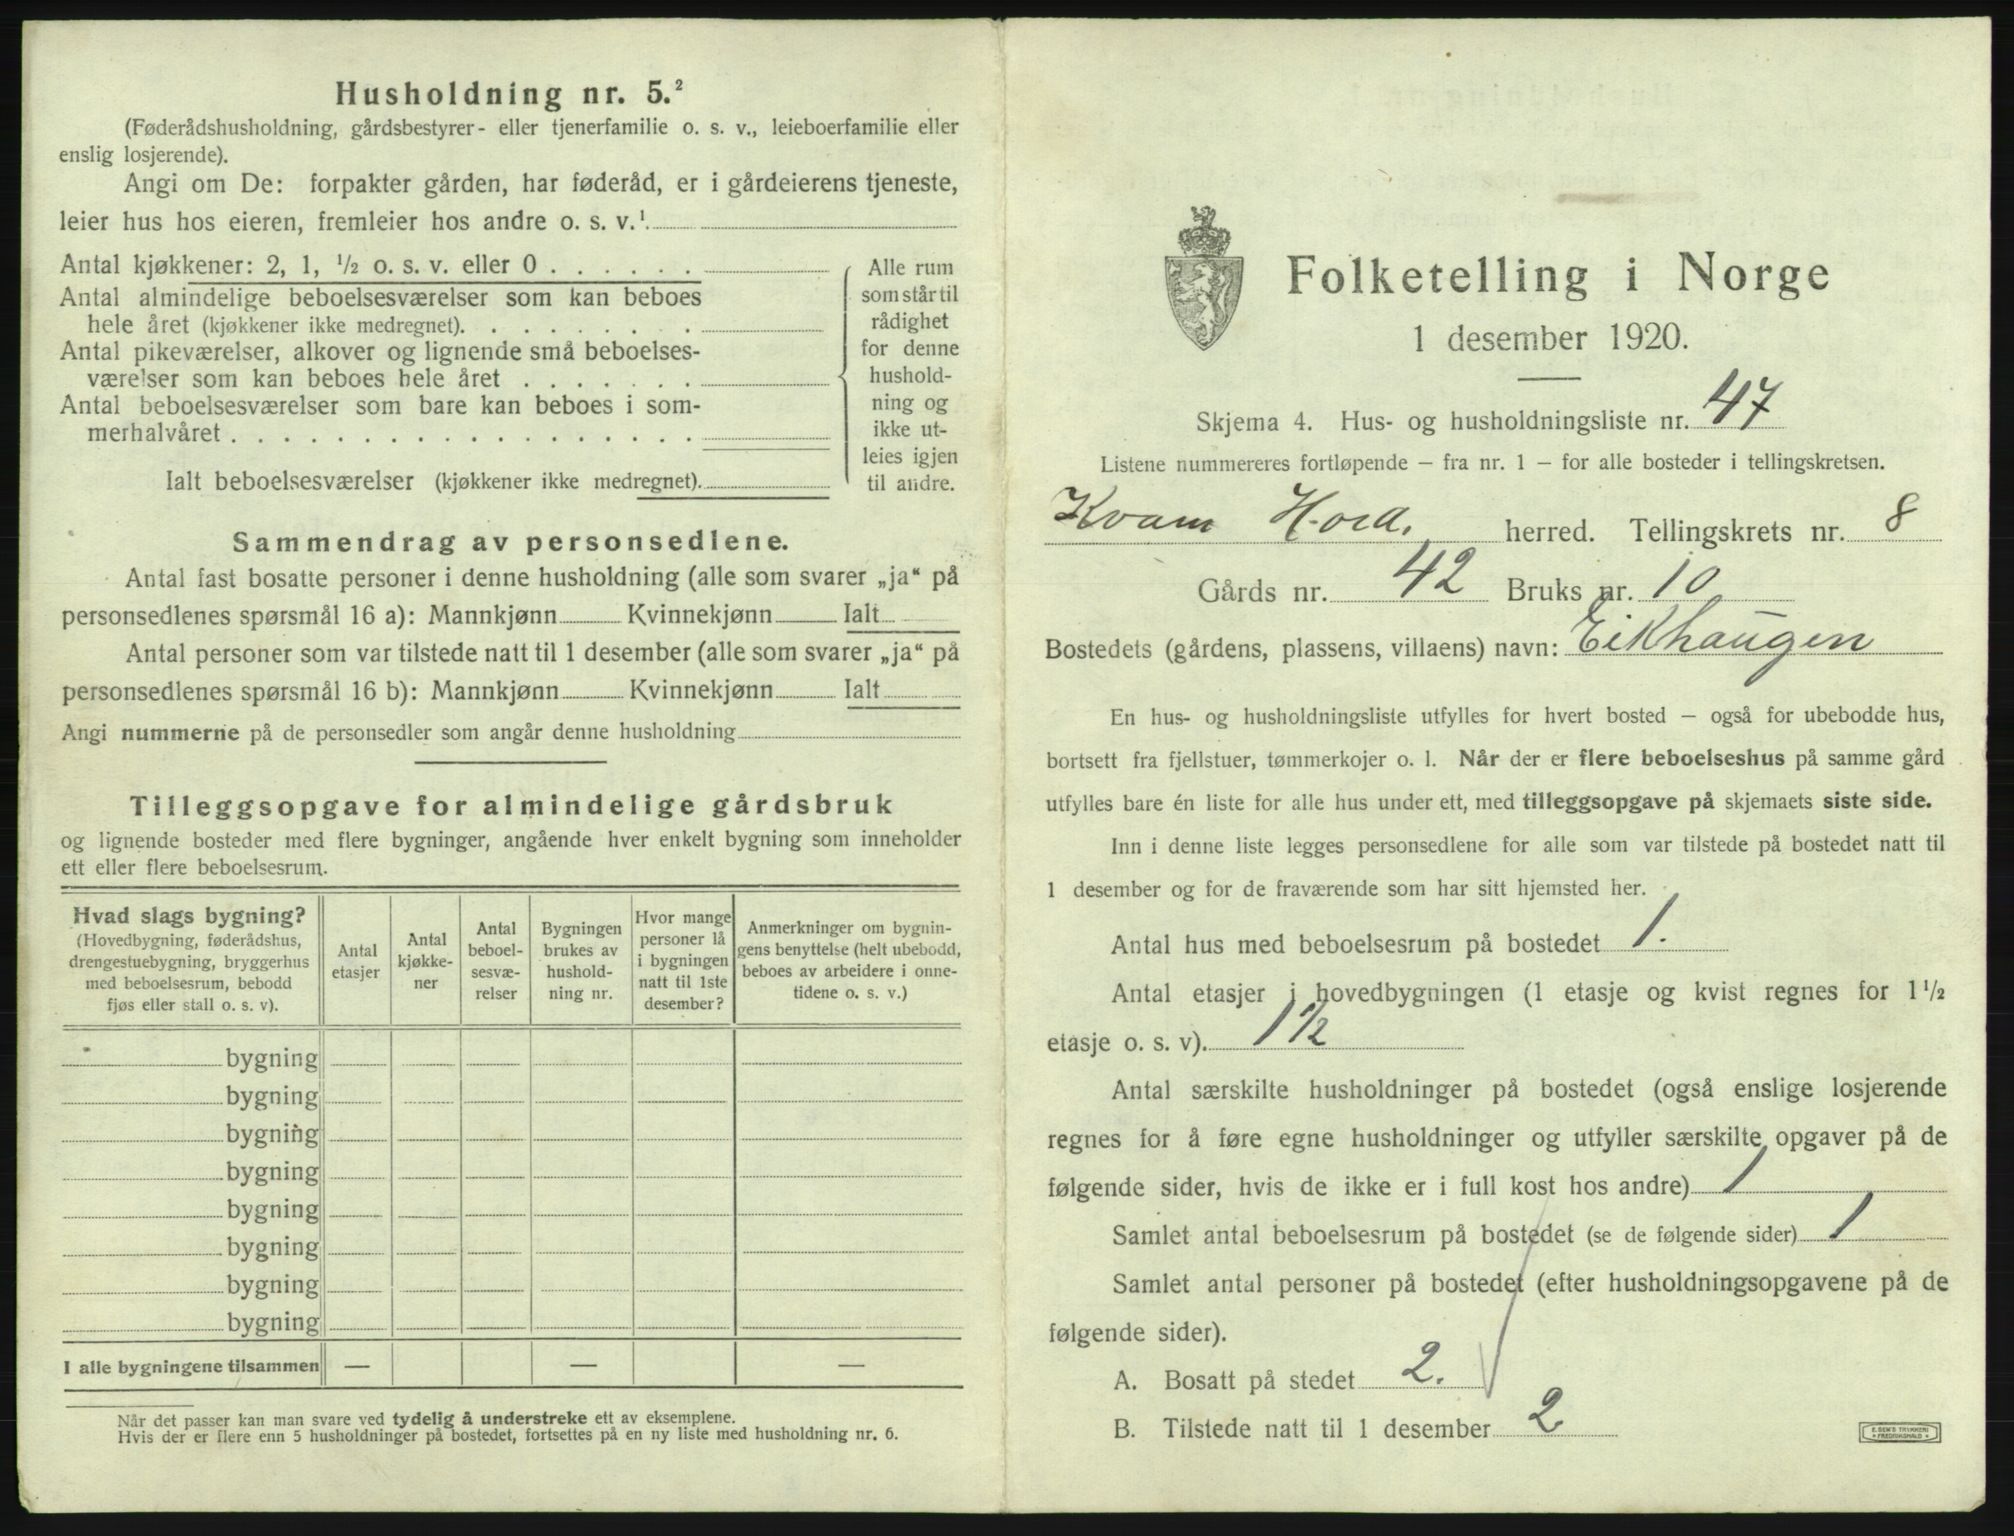 Husholdning nr. 5.²
(Føderådshusholdning, gårdsbestyrer- eller tjenerfamilie o. s. v., leieboerfamilie eller
enslig losjerende).
Angi om De: forpakter gården, har føderåd, er i gårdeierens tjeneste,
leier hus hos eieren, fremleier hos andre o. s. v.¹
Antal kjøkkener: 2, 1, ½ o. s. v. eller 0
Antal almindelige beboelsesværelser som kan beboes
hele året (kjøkkener ikke medregnet).
Antal pikeværelser, alkover og lignende små beboelses-
værelser som kan beboes hele året
Antal beboelsesværelser som bare kan beboes i som-
merhalvåret
Ialt beboelsesværelser (kjøkkener ikke medregnet).
Alle rum
som står til
rådighet
for denne
hushold-
ning og
ikke ut-
leies igjen
til andre.
Sammendrag av personsedlene.
Antal fast bosatte personer i denne husholdning (alle som svarer „ja“ på
personsedlenes spørsmål 16 a): Mannkjønn Kvinnekjønn Ialt
Antal personer som var tilstede natt til 1 desember (alle som svarer „ja“ på
personsedlenes spørsmål 16 b): Mannkjønn Kvinnekjønn Ialt
Angi nummerne på de personsedler som angår denne husholdning
Tilleggsopgave for almindelige gårdsbruk
og lignende bosteder med flere bygninger, angående hver enkelt bygning som inneholder
ett eller flere beboelsesrum.
Hvad slags bygning?
(Hovedbygning, føderådshus,
drengestuebygning, bryggerhus
med beboelsesrum, bebodd
fjøs eller stall o. s. v).
Antal
etasjer
Antal
kjøkke-
ner
Antal
beboel-
sesvæ-
relser
Bygningen
brukes av
hushold-
ning nr.
Hvor mange
personer lå
i bygningen
natt til 1ste
desember?
Anmerkninger om bygnin-
gens benyttelse (helt ubebodd,
beboes av arbeidere i onne-
tidene o. s. v.)
bygning
bygning
bygning
bygning
bygning
bygning
bygning
bygning
I alle bygningene tilsammen — — —
Når det passer kan man svare ved tydelig å understreke ett av eksemplene.
Hvis der er flere enn 5 husholdninger på bostedet, fortsettes på en ny liste med husholdning nr. 6.
Folketelling i Norge
1 desember 1920.
Skjema 4. Hus- og husholdningsliste nr. 47
Listene nummereres fortløpende — fra nr. 1 — for alle bosteder i tellingskretsen.
Kvam Hord. herred. Tellingskrets nr. 8
Gårds nr. 42 Bruks nr. 10
Bostedets (gårdens, plassens, villaens) navn: Eikhaugen
En hus- og husholdningsliste utfylles for hvert bosted — også for ubebodde hus,
bortsett fra fjellstuer, tømmerkojer o. l. Når der er flere beboelseshus på samme gård
utfylles bare én liste for alle hus under ett, med tilleggsopgave på skjemaets siste side.
Inn i denne liste legges personsedlene for alle som var tilstede på bostedet natt til
1 desember og for de fraværende som har sitt hjemsted her.
Antal hus med beboelsesrum på bostedet 1.
Antal etasjer i hovedbygningen (1 etasje og kvist regnes for 1½
etasje o. s. v). 1½
Antal særskilte husholdninger på bostedet (også enslige losjerende
regnes for å føre egne husholdninger og utfyller særskilte opgaver på de
følgende sider, hvis de ikke er i full kost hos andre) 1
Samlet antal beboelsesrum på bostedet (se de følgende sider) 1
Samlet antal personer på bostedet (efter husholdningsopgavene på de
følgende sider).
A. Bosatt på stedet 2.
B. Tilstede natt til 1 desember 2
E. SEM'S TRYKKERI
FREDRIKSHALD